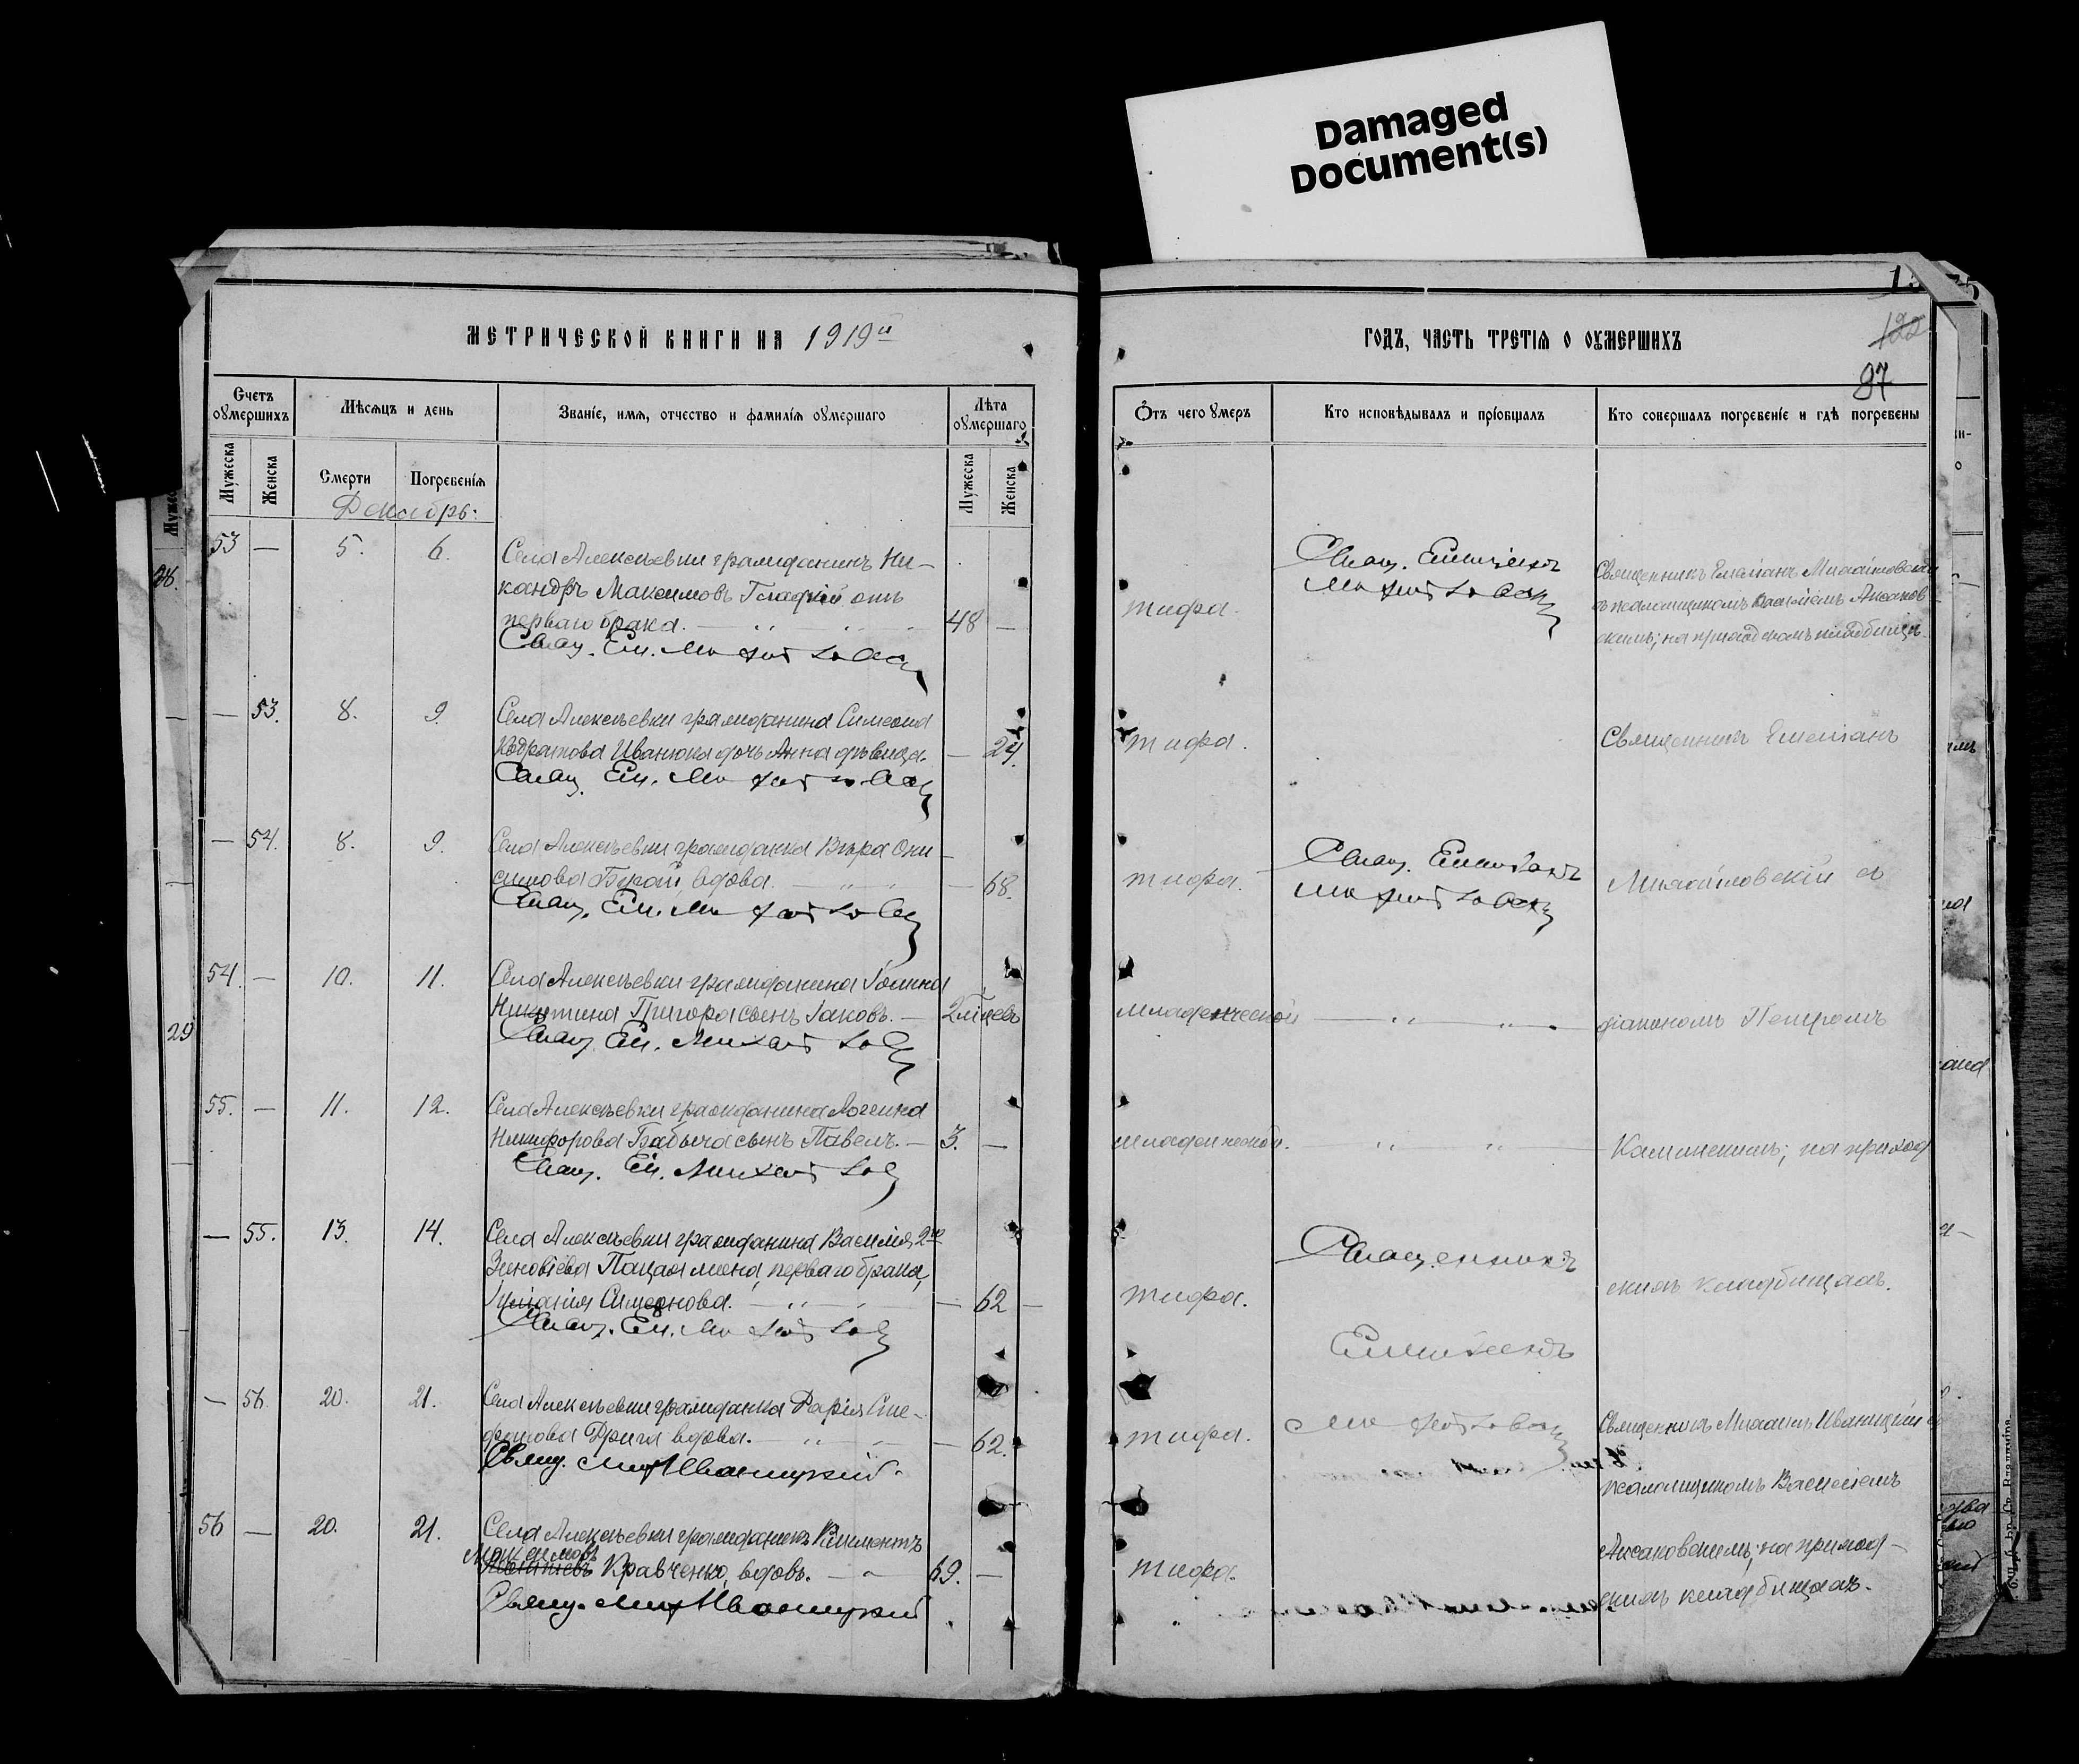 Damaged
Document(s)
МЕТРИЧЕСКОЙ КНИГИ НА 1919й
Счетъ оумершихъ
Мѣсяцъ и день
Званіе, имя, отчество и фамилія оумершаго
Лѣта оумершаго
Мужеска
Женска
Смерти
Погребенія
Мужеска
Женска
Декабрь:
53 — 5. 6. Села Алексѣевки гражданинъ Ни-
кандръ Максимовъ Гладкій отъ
перваго брака. 48 —
Свящ. Ем. Михайловскій
— 53. 8. 9. Села Алексѣевки гражданина Симеона
Иванюка дочь Анна дѣвица. — 24.
Свящ. Ем. Михайловскій
— 54. 8. 9. Села Алексѣевки гражданка Вѣра Они-
симова вдова. — 68.
Свящ. Ем. Михайловскій
54. — 10. 11. Села Алексѣевки гражданина
Никитина Григора сынъ Іаковъ. —
Свящ. Ем. Михайловскій
55. — 11. 12. Села Алексѣевки гражданина Логгина
Никифорова Бабыча сынъ Павелъ. — 3. —
Свящ. Ем. Михайловскій
— 55. 13. 14. Села Алексѣевки гражданина Василія 2го
Зиновіева жена, перваго брака,
Симеонова. — 62 —
Свящ. Ем. Михайловскій
— 56. 20. 21. Села Алексѣевки гражданка Сте-
фанова Дрига вдова. — 62.
Свящ. Мих Иваницкій.
56 — 20. 21. Села Алексѣевки гражданинъ Климентъ
Максимовъ
Кравченко, вдовъ. — 69. —
Свящ. Мих Иваницкій
ГОДЪ, ЧАСТЬ ТРЕТІЯ О ОУМЕРШИХЪ
122
87
Отъ чего умеръ
Кто исповѣдывалъ и пріобщалъ
Кто совершалъ погребеніе и гдѣ погребены
тифа.
Свящ. Емиліанъ
Михайловскій
Священникъ Емеліанъ Михайловскій
съ псаломщикомъ Василіемъ Аксаков-
скимъ; на приходскомъ кладбищѣ.
тифа.
Священникъ Емеліанъ
тифа.
Свящ. Емиліанъ
Михайловскій
Михайловскій съ
младенческой
діакономъ Петромъ
младенческой.
Каминскимъ; на приход
тифа.
Священникъ
скихъ кладбищахъ.
Емиліанъ
тифа.
Михайловскій
Священникъ Михаилъ Иваницкій съ
псаломщикомъ Василіемъ
тифа.
Аксаковскимъ; на приход-
скихъ кладбищахъ.
28.
29